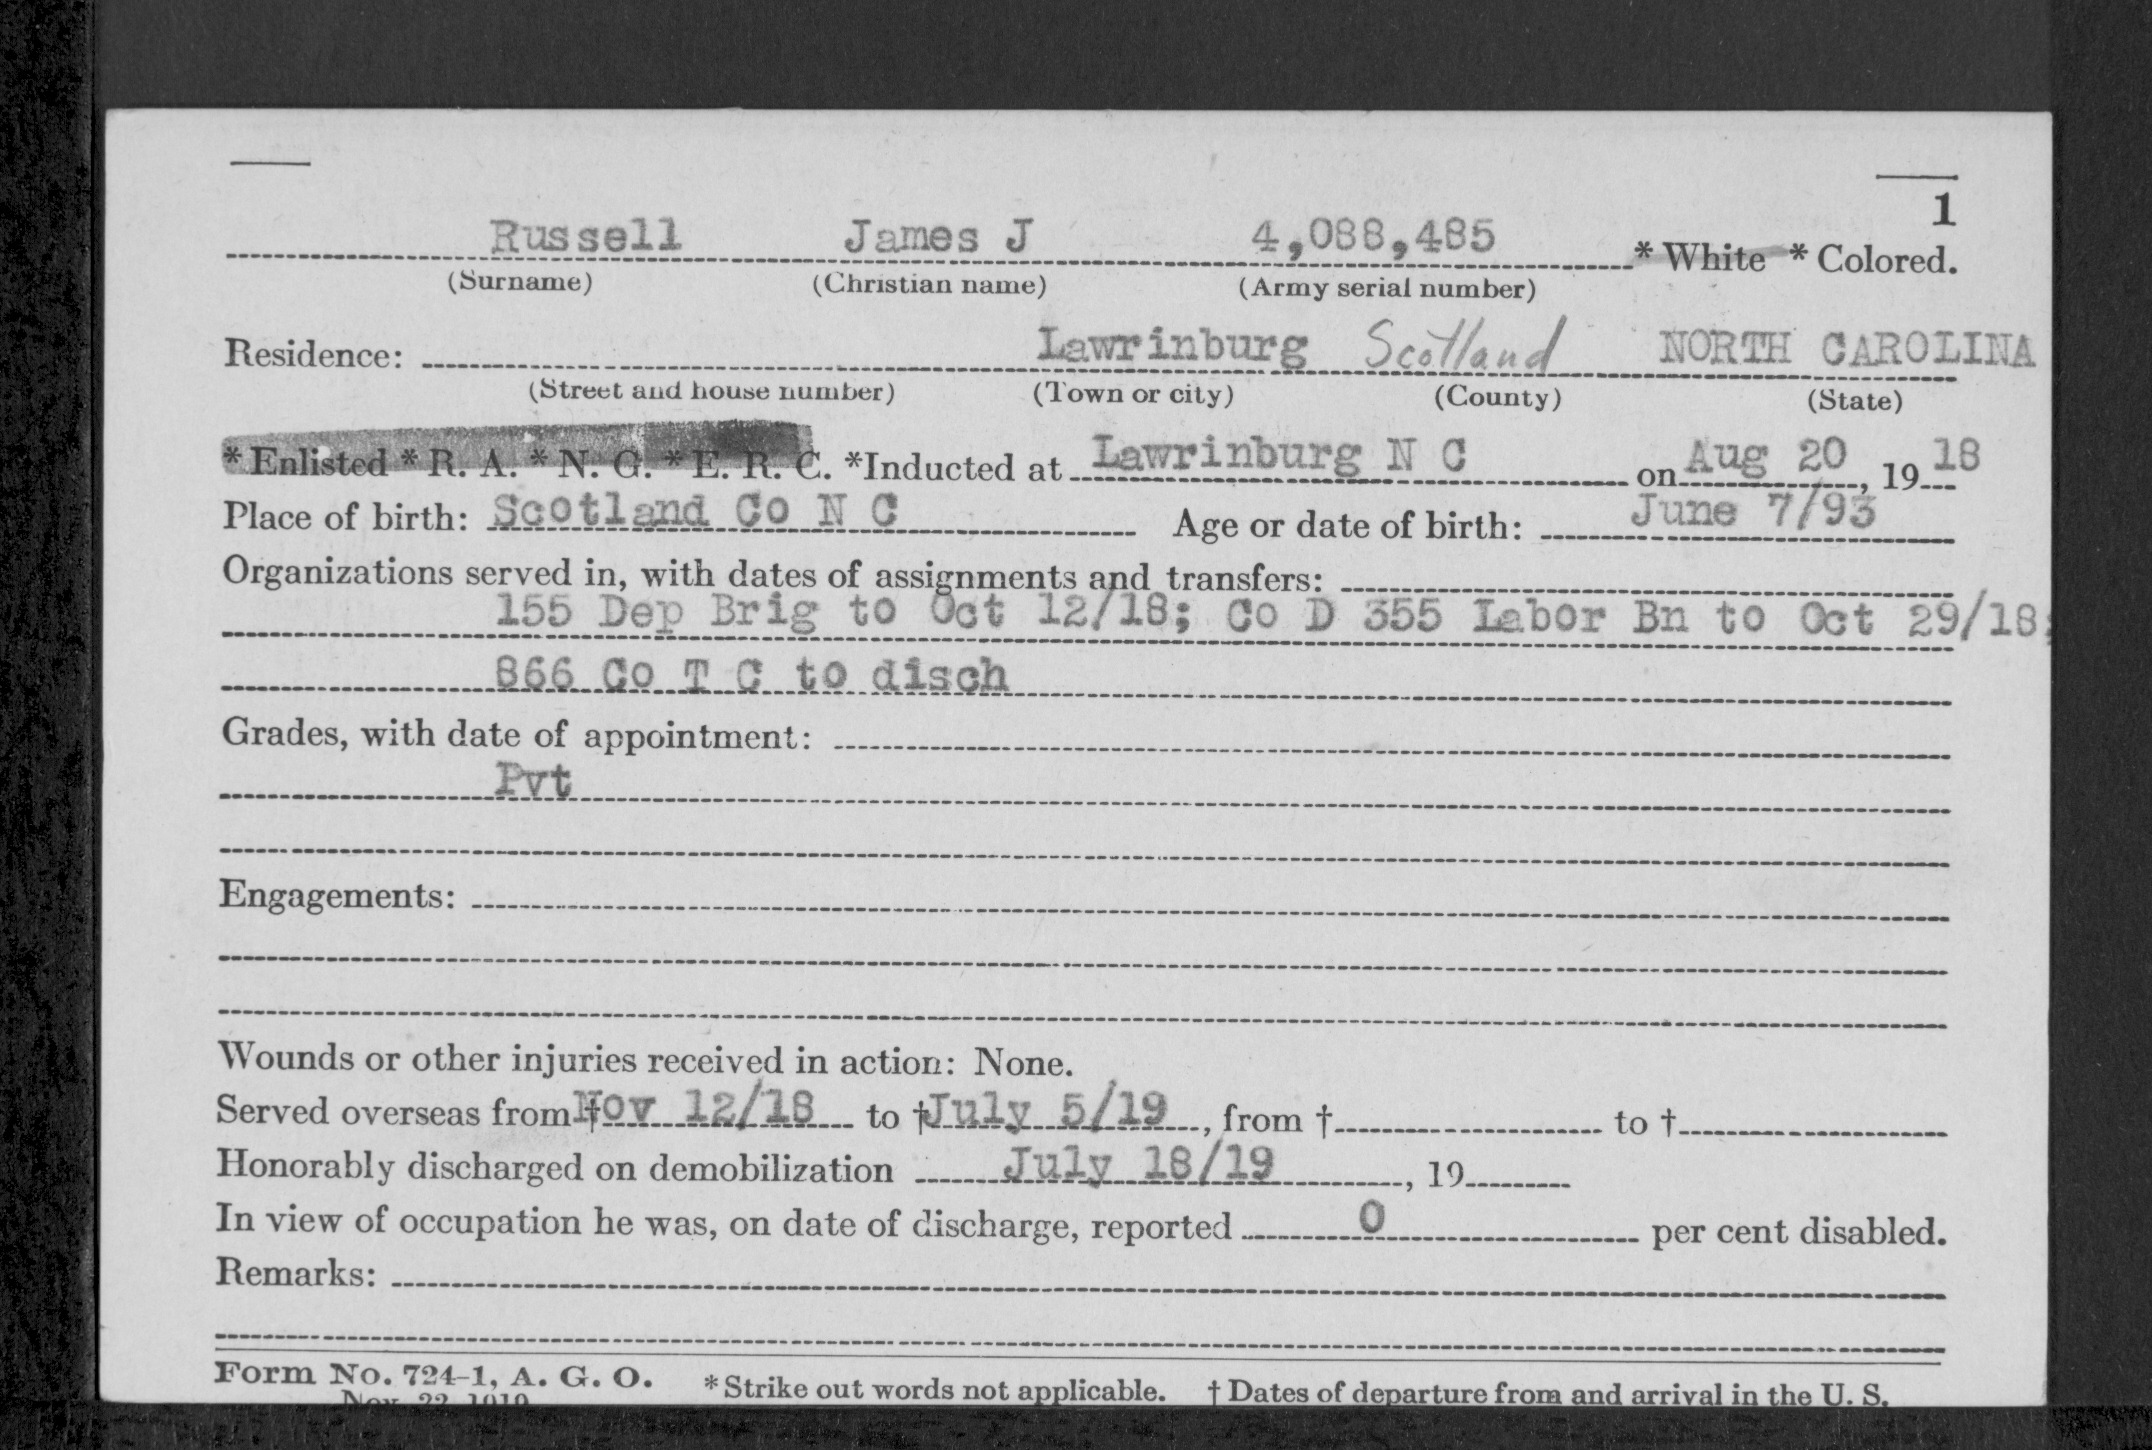 1
Russell James J 4,088,485 * White * Colored.
(Surname) (Christian name) (Army serial number)
Residence: Lawrinburg Scotland NORTH CAROLINA
(Street and house number) (Town or city) (County) (State)
* Enlisted * R. A. * N. G. * E. R. C. *Inducted at Lawrinburg N C on Aug 20, 19 18
Place of birth: Scotland Co N C Age or date of birth: June 7/93
Organizations served in, with dates of assignments and transfers:
155 Dep Brig to Oct 12/18; Co D 355 Labor Bn to Oct 29/18;
866 Co T C to disch
Grades, with date of appointment:
Pvt
Engagements:
Wounds or other injuries received in action: None.
Served overseas from † Nov 12/18 to † July 5/19, from † to †
Honorably discharged on demobilization July 18/19, 19
In view of occupation he was, on date of discharge, reported 0 per cent disabled.
Remarks:
Form No. 724-1, A. G. O. * Strike out words not applicable. † Dates of departure from and arrival in the U. S.
Nov. 22, 1919